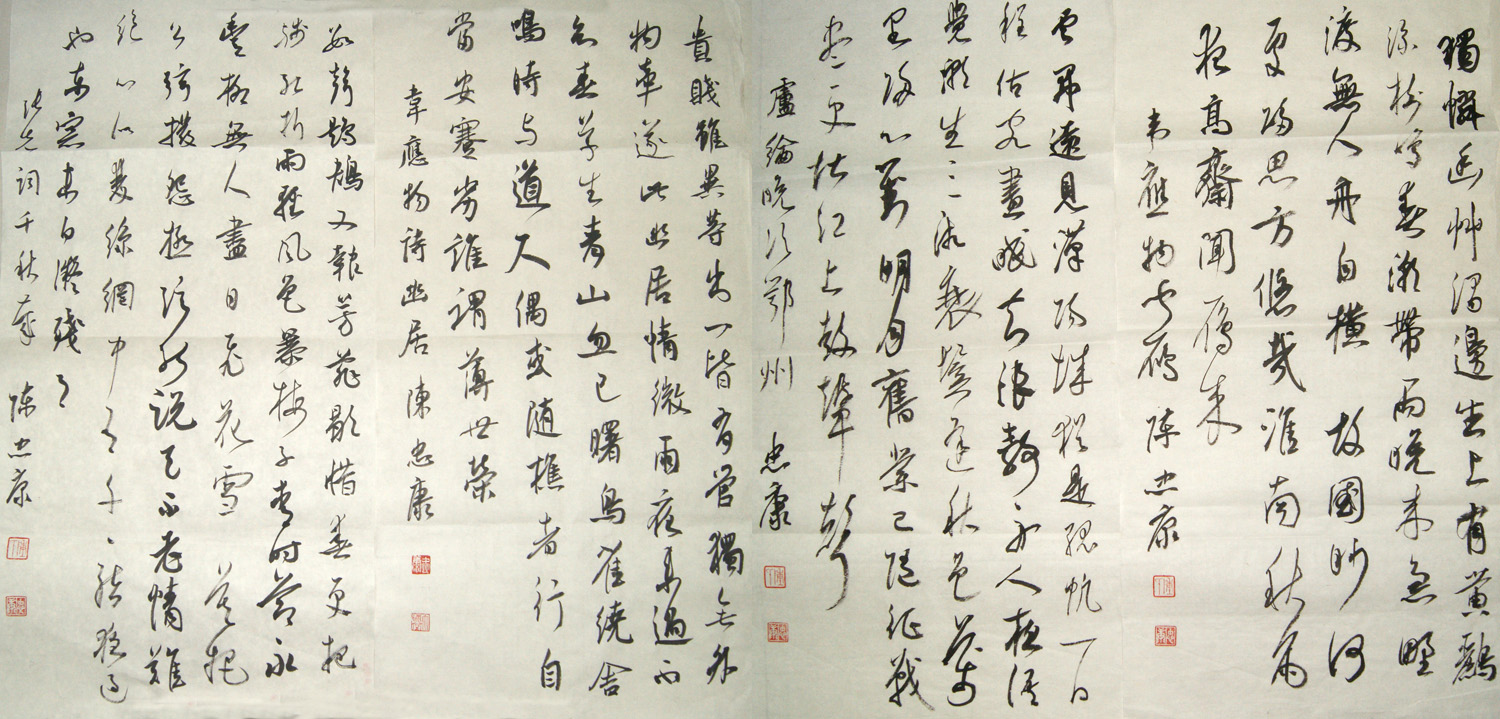 獨憐幽艸澗邊生上有黄鸝
深樹鳴春潮帶雨晚来急野
渡無人舟自横 故國眇何
處歸思方悠哉淮南秋雨
夜高齋聞雁来
韋應物聞雁 陳忠康
雲開遠見漢陽城猶是孤帆一日
程估客晝眠知浪静舟人夜語
覺潮生三湘衰鬢逢秋色萬
里歸心對明月舊業已隨征戰
盡更堪江上鼓鼙聲
盧綸晚次鄂州 忠康
貴賤雖異等出门皆有營獨無外
物牽遂此幽居情微雨夜来過不
知春草生青山忽已曙鳥雀繞舍
鳴時与道人偶或随樵者行自
當安蹇劣誰謂薄世榮
韋應物詩幽居 陳忠康
數聲鶗鴂又報芳菲歇惜春更把
殘紅折雨輕風色暴梅子青時節永
豐柳無人盡日飛花雪 莫把
幺弦撥怨極弦能說天不老情難
絕心似雙絲網中有千千結夜過
也東窗未白凝殘月
張先詞千秋歲 陳忠康